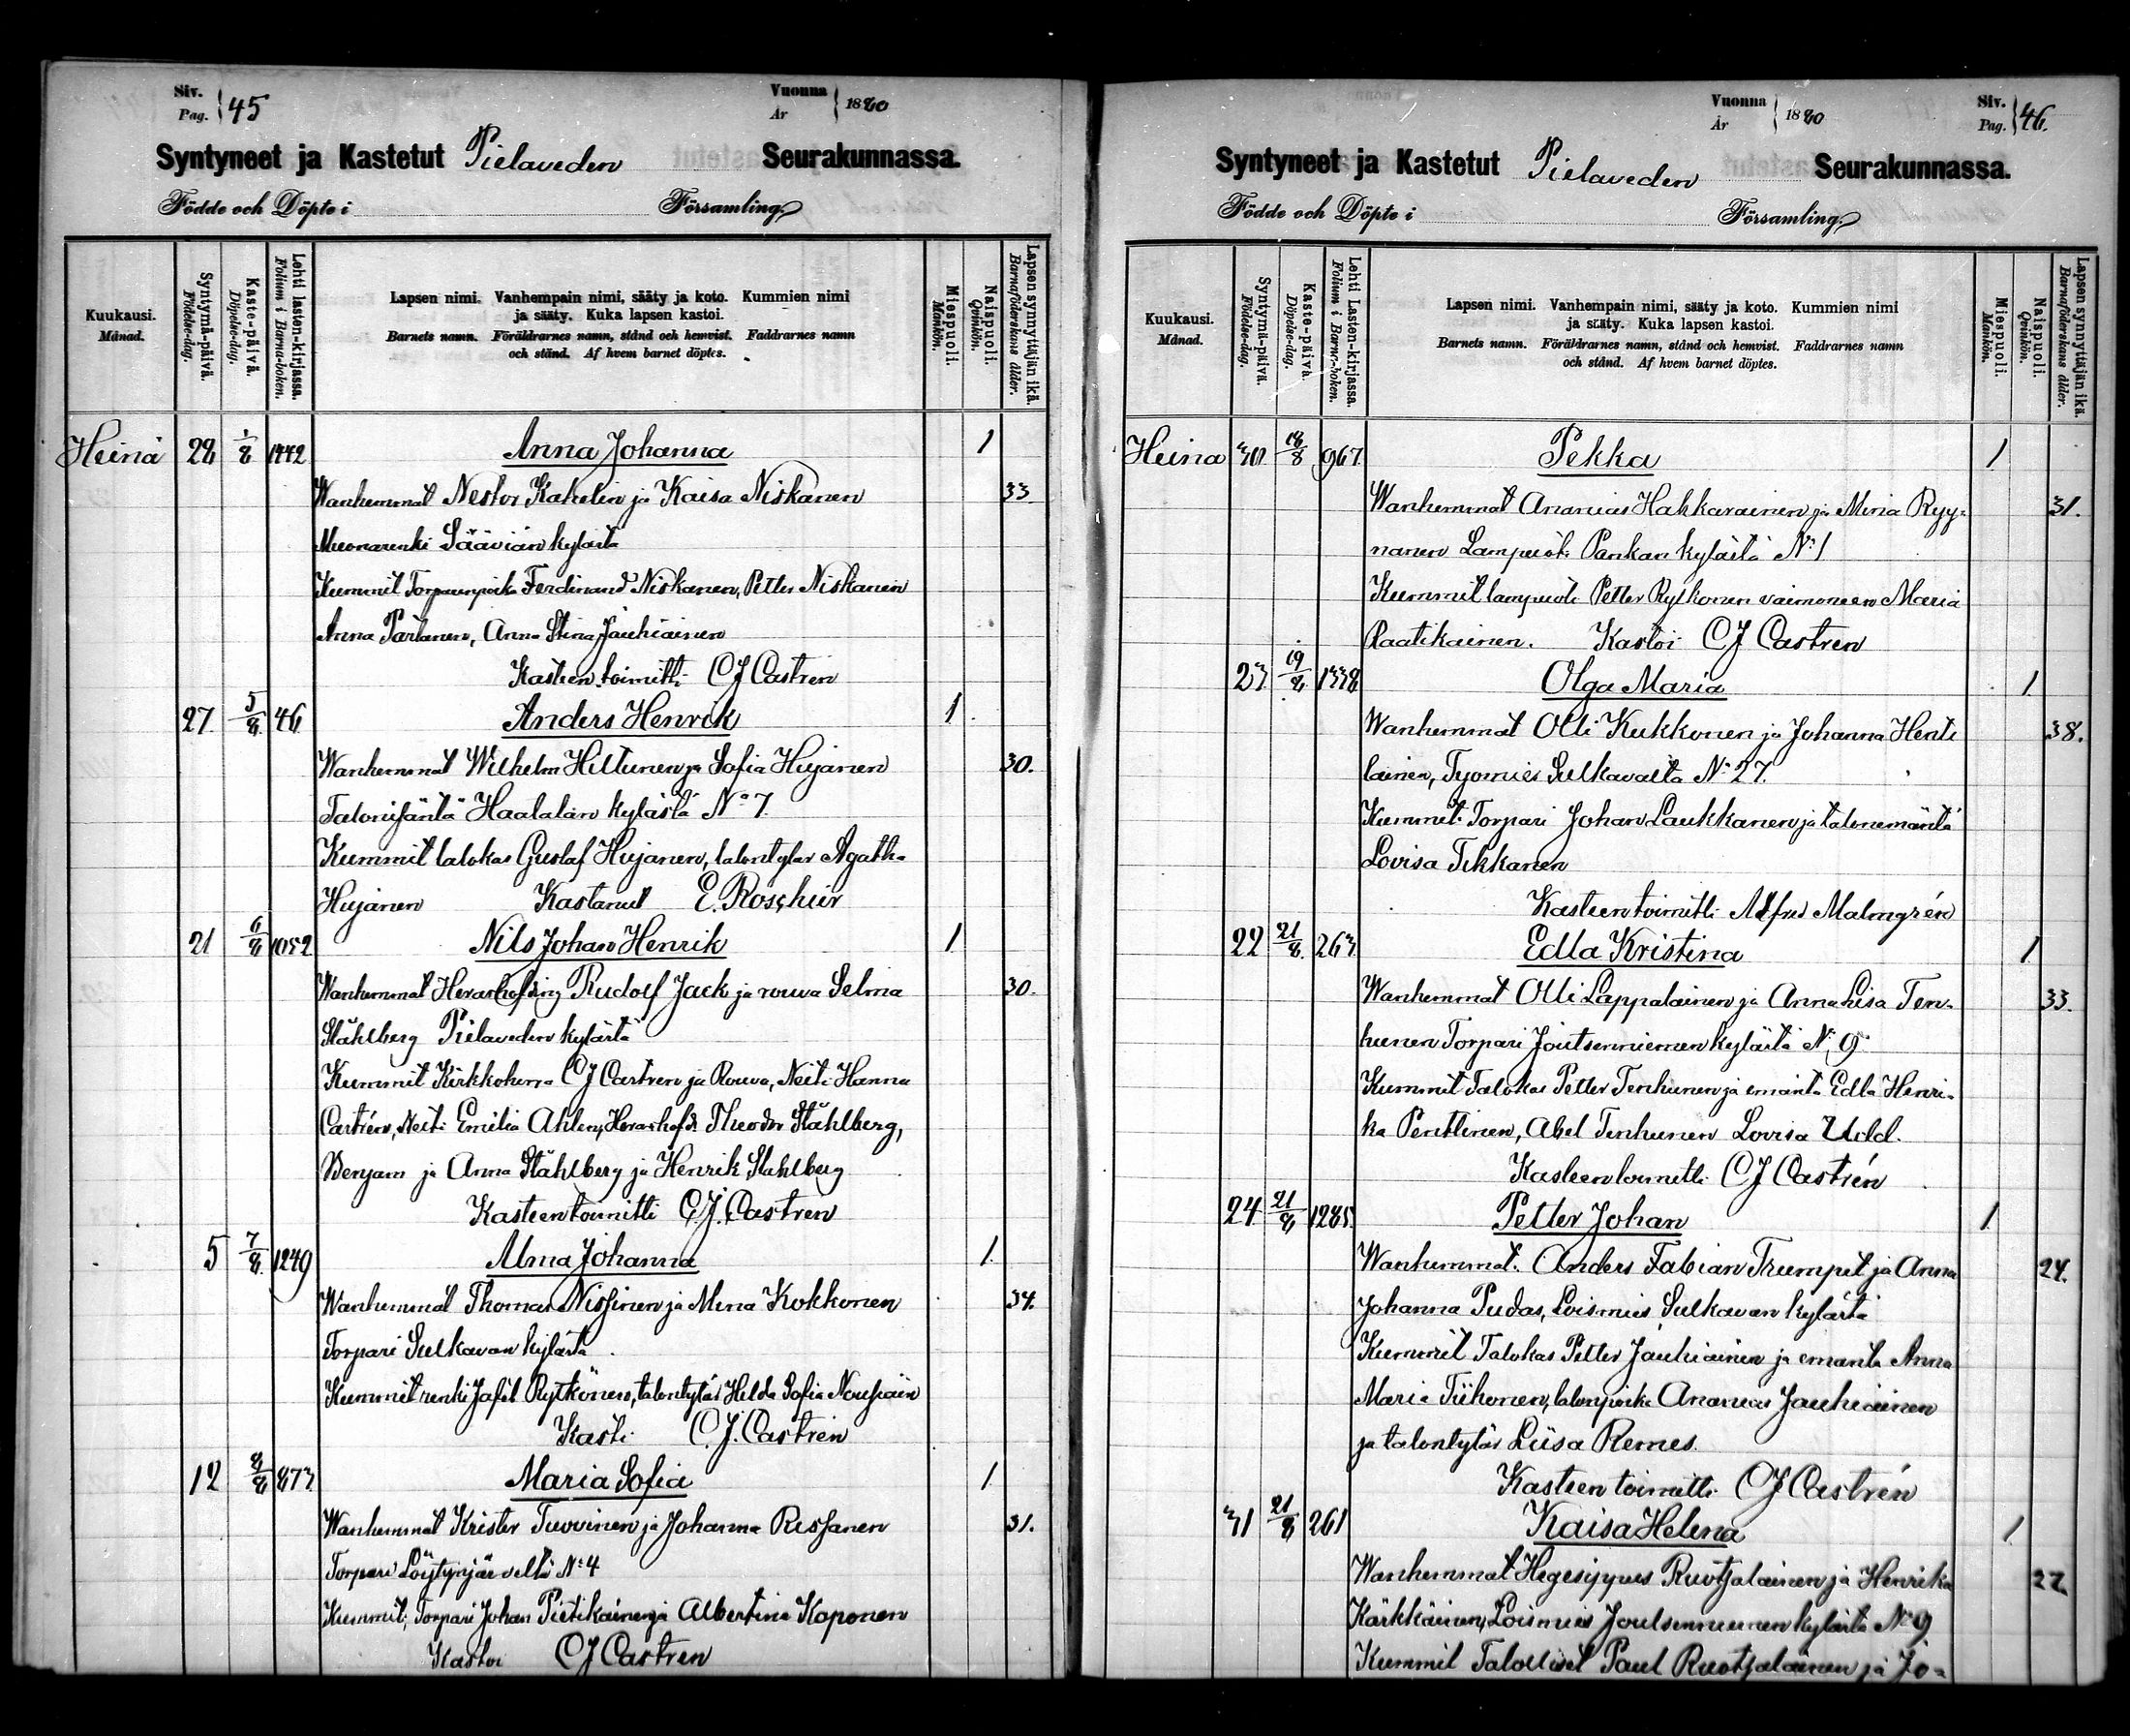 Siv. Pag. 45
Vuonna År 1880
Syntyneet ja Kastetut Pielaveden Seurakunnassa.
Födde och Döpte i Församling.
Kuukausi. Månad.
Syntymä-päivä. Födelse-dag.
Kaste-päivä. Döpelse-dag.
Lehti lasten-kirjassa. Folium i Barna-boken.
Lapsen nimi. Vanhempain nimi, sääty ja koto. Kummien nimi
ja sääty. Kuka lapsen kastoi.
Barnets namn. Föräldrarnes namn, stånd och hemvist. Faddrarnes namn
och stånd. Af hvem barnet döptes.
Miespuoli. Mankön.
Naispuoli. Qvinkön.
Lapsen synnyttäjän ikä. Barnaföderskans ålder.
Heinä 28 1/8 1442 Anna Johanna 1
Wanhemmat Nestor Kakelin ja Kaisa Niskanen 33.
Muonarenki Sääviän kylästä
Kummit Torpanpoika Ferdinand Niskanen, Petter Niskanen
Anna Parlanen, Anna Stina Jauhiainen
Kasteen toimitti CJ Castren
27. 5/8 46 Anders Henrik 1
Wanhemmat Wilhelm Hiltunen ja Sofia Hujanen 30.
Talonisäntä Haatalan kylästä No 7.
Kummit talokas Gustaf Hujanen, talontytär Agatha
Hujanen Kastanut E. Roschier
21 6/8 1052 Nils Johan Henrik 1
Wanhemmat Rudolf Jack ja rouva Selma 30.
Ståhlberg Pielaveden kylästä
Kummit Kirkkoherra CJ Castren ja Rouva, Neiti Hanna
Castrén, Neiti Emilia Ahlen, Theodor Ståhlberg,
Benjam ja Anna Ståhlberg ja Henrik Stahlberg
Kasteen toimitti C.J. Castren
5 7/8 1249 Alma Johanna 1.
Wanhemmat Thomas Nissinen ja Mena Kokkonen 34.
Torpari Sulkavan kylästä
Kummit renki Jafet Rytkönen, talontytär Helda Sofia
Kasti C.J. Castren
12 8/8 873 Maria Sofia 1.
Wanhemmat Krister Tuovinen ja Johanna Rissanen 31.
Torpari Löytynjärveltä No 4
Kummit, Torpari Johan Pietikäinen ja Albertina Koponen
Kastoi CJ Castren
Vuonna År 1880
Siv. Pag. 46.
Syntyneet ja Kastetut Pielaveden Seurakunnassa.
Födde och Döpte i Församling.
Kuukausi. Månad.
Syntymä-päivä. Födelse-dag.
Kaste-päivä. Döpelse-dag.
Lehti Lasten-kirjassa. Folium i Barna-boken.
Lapsen nimi. Vanhempain nimi, sääty ja koto. Kummien nimi
ja sääty. Kuka lapsen kastoi.
Barnets namn. Föräldrarnes namn, stånd och hemvist. Faddrarnes namn
och stånd. Af hvem barnet döptes.
Miespuoli. Mankön.
Naispuoli. Qvinkön.
Lapsen synnyttäjän ikä. Barnaföderskans ålder.
Heinä 30 18/8 967. Pekka 1
Wanhemmat Ananias Hakkarainen ja Miina Ryy- 31.
nanen Lampuoti Pankan kylästä No 1
Kummit lampuoti Petter Rytkonen vaimoneen Maria
Raatikainen. Kastoi CJ Castren
23 19/8 1338 Olga Maria 1
Wanhemmat Olli Kukkonen ja Johanna Henti 38.
lainen, Tyomies Sulkavalta No 27.
Kummit Torpari Johan Laukkanen ja talonemäntä
Lovisa Tikkanen
Kasteen toimitti Alfred Malmgrén
22 21/8 263 Edla Kristina 1.
Wanhemmat Olli Lappalainen ja Anna Lisa Ten- 33.
hunen Torpari Joutsenniemen kylästä No 9.
Kummit Talokas Petter Tenhunen ja emäntä Edla Henri-
ka Penttinen, Abel Tenhunen Lovisa Udd.
Kasteen toimitti CJ Castrén
24 21/8 1285. Petter Johan 1.
Wanhemmat. Anders Fabian Trumpet ja Anna 24.
Johanna Pudas, Loismies Sulkavan kylästä
Kummit Talokas Petter Jauhiainen ja emäntä Anna
Maria Tiihonen, talonpoika Ananias Jauhiainen
ja talontytär Liisa Remes.
Kasteen toimitti CJ Castrén
31 21/8 261 Kaisa Helena 1
Wanhemmat Hegesippus Ruotsalainen ja Henrika 27
Kärkkäinen, Loismies Joutsenniemen kylästä No 9
Kummit Talolliset Paul Ruotsalainen ja Jo-